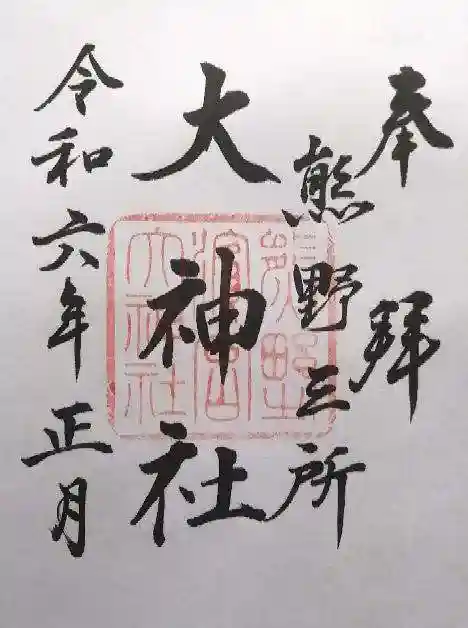 奉拝
熊野三所
大神社
令和六年正月
熊野
濱宮
大神社